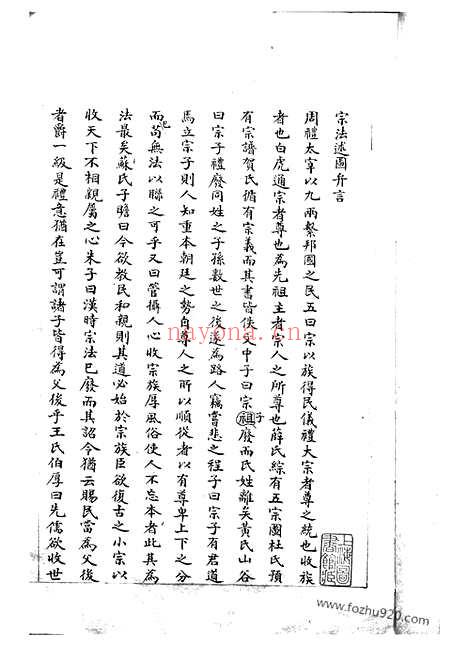 宗法述圖弁言
周禮太宰以九兩繫邦國之民五曰宗以族得民儀禮大宗者尊之統也收族
者也白虎通宗者尊也為先祖主者宗人之所尊也薛氏綜有五宗圖杜氏預
有宗譜賀氏循有宗義而其書皆佚文中子曰宗祖廢而氏姓離矣黃氏山谷
子
曰宗子禮廢同姓之子孫數世之後遂為路人竊嘗悲之程子曰宗子有君道
焉立宗子則人知重本朝廷之勢自尊人之所以順從者以有尊卑上下之分
而苟無法以聯之可乎又曰管攝人心收宗族厚風俗使人不忘本者此其為
已
法最矣蘇氏子瞻曰今欲教民和親則其道必始於宗族臣欲復古之小宗以
收天下不相親屬之心朱子曰漢時宗法已廢而其詔令猶云賜民當為父後
者爵一級是禮意猶在豈可謂諸子皆得為父後乎王氏伯厚曰先儒欲收世
上海圖
書館藏
nayona.cn
www.fozhu920.com